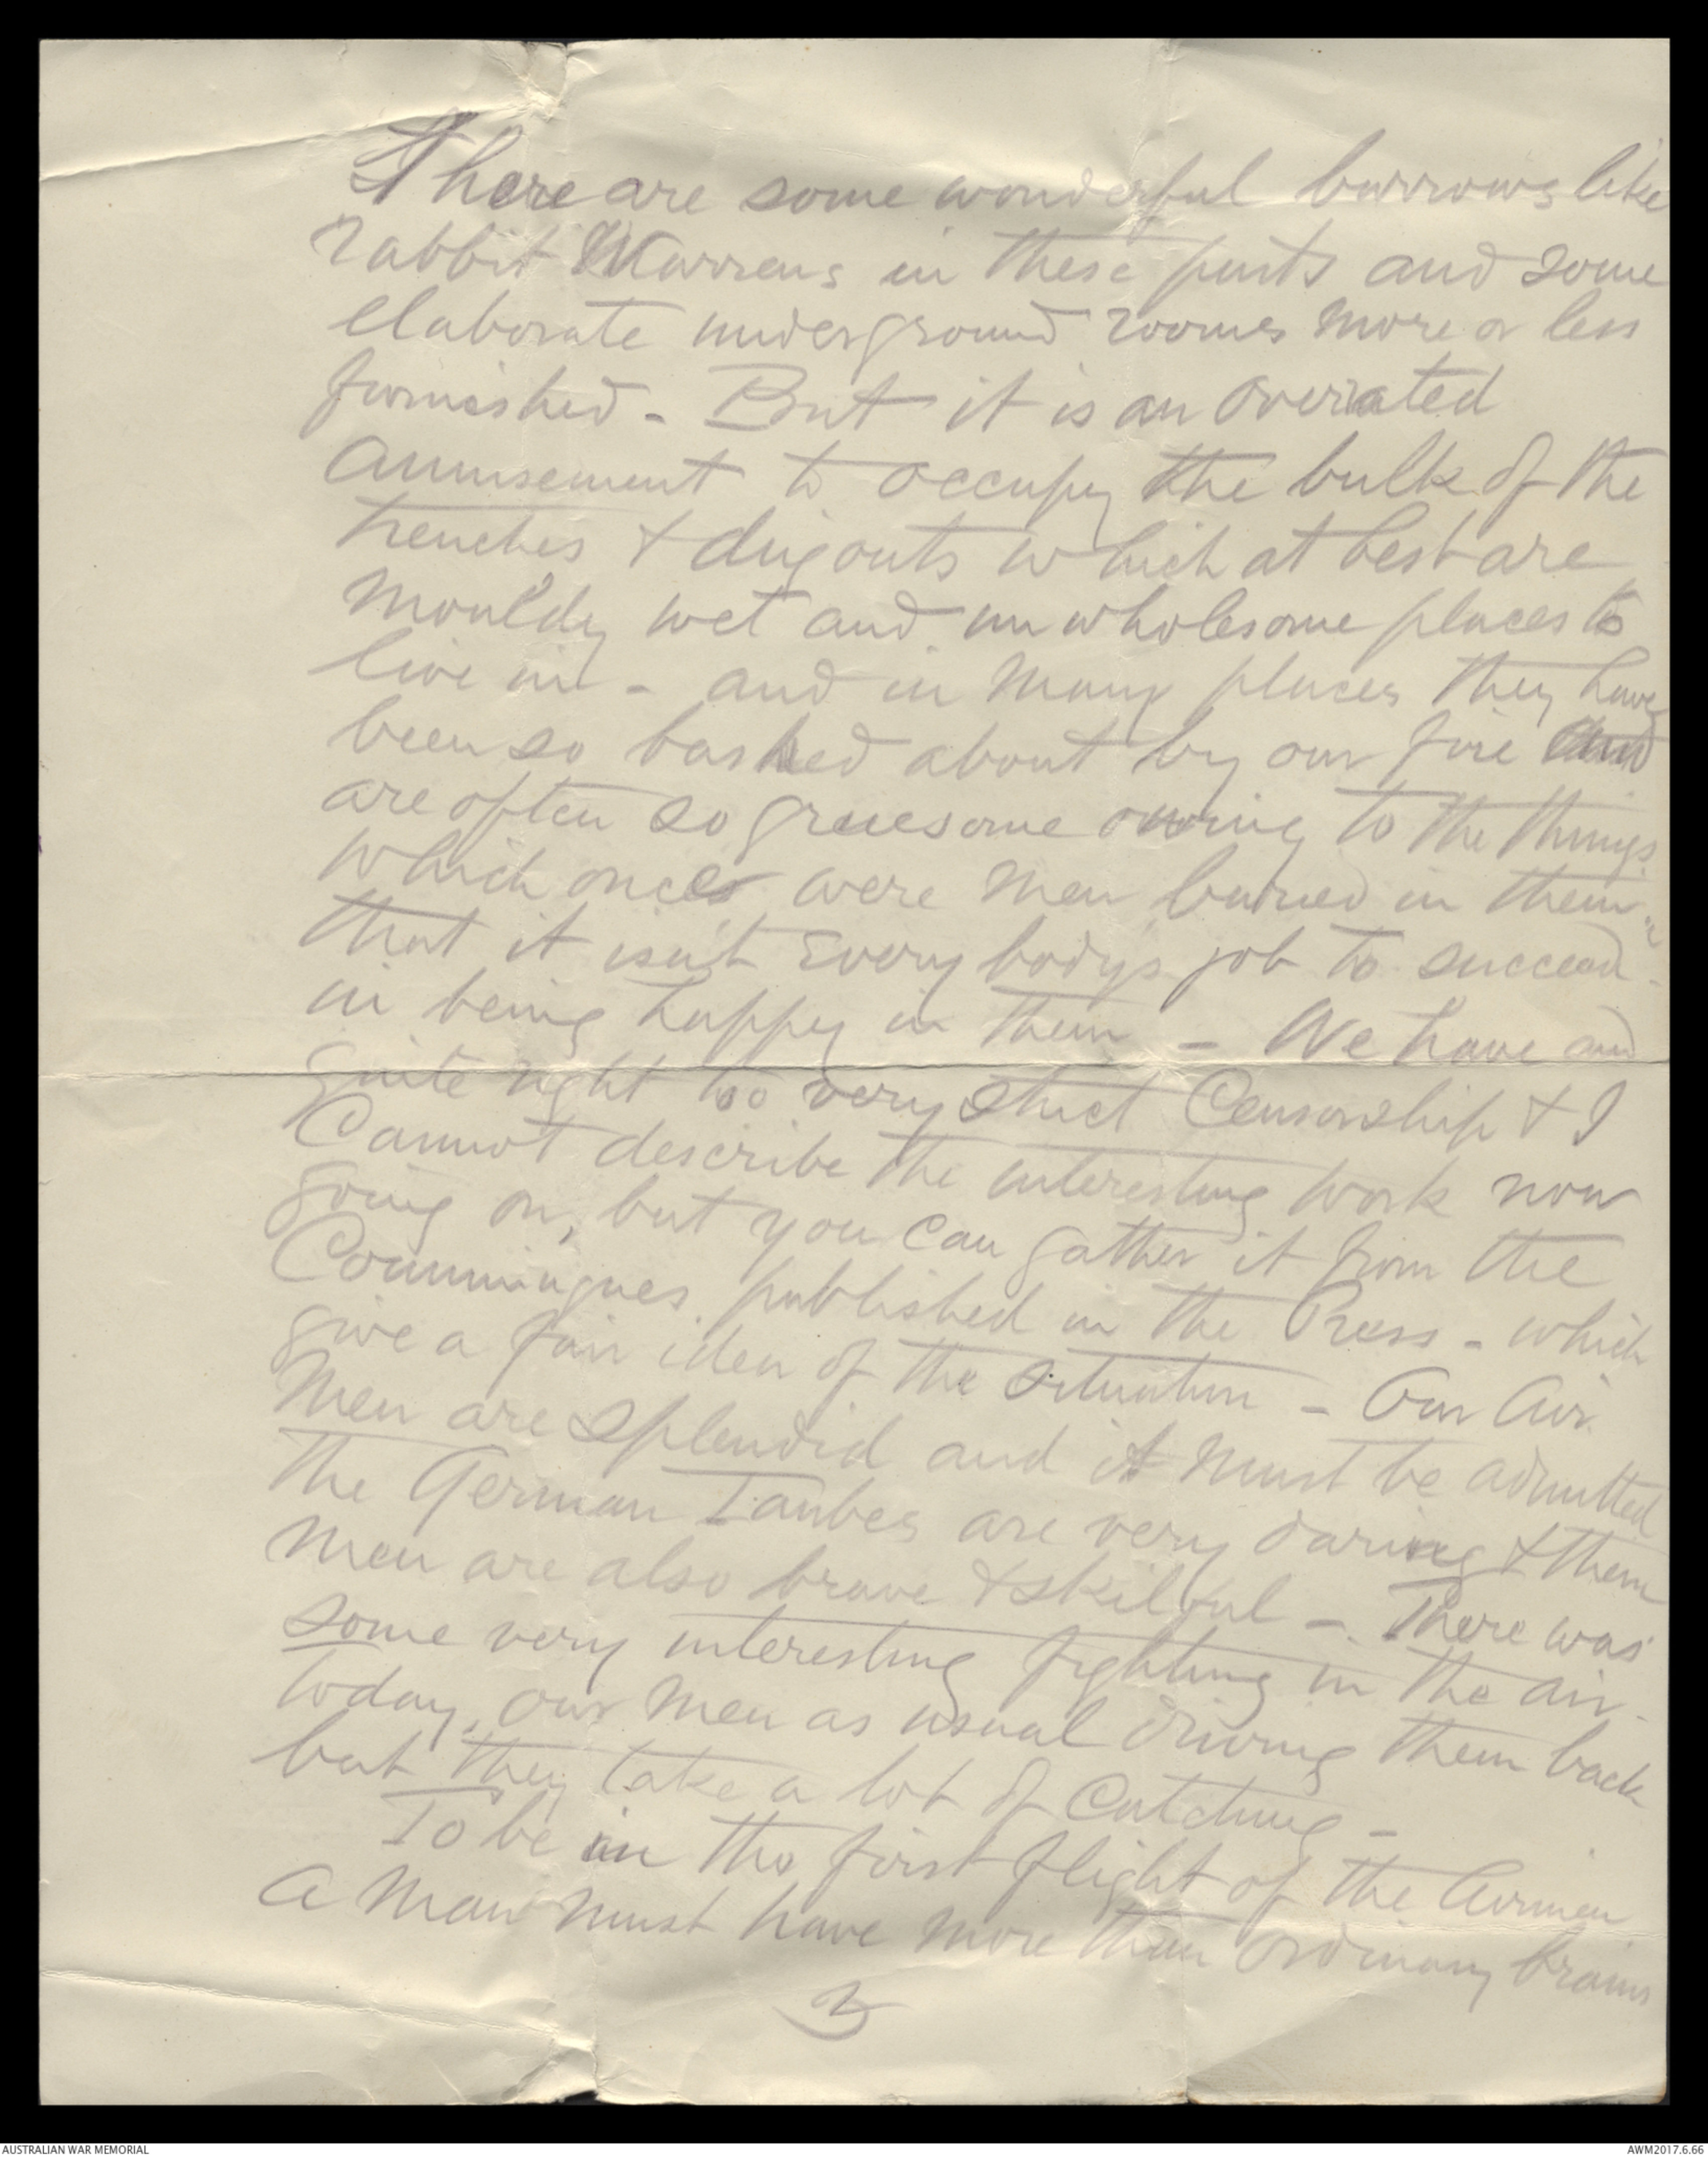 There are some wonderful burrows like
rabbit Warrens in these parts and some
elaborate underground rooms more or less
furnished - But it is an overrated
amusement to occupy the bulk of the
trenches & dugouts which at best are
mouldy wet and unwholesome places to
live in - and in many places they have
been so bashed about by our fire and
are often so gruesome owing to the things
which once were men buried in them
that it isn't everybody's job to succeed
in being happy in them - We have and
quite right too very strict Censorship & I
Cannot describe the interesting work now
going on, but you can gather it from the
Communiques published in the Press - which
give a fair idea of the situation - Our Air
Men are splendid and it must be admitted
the German Taubes are very daring & them
men are also brave & skilful - There was
some very interesting fighting in the air
today, our men as usual driving them back
but they take a lot of catching -
To be in the first flight of the Airmen
a man must have more than ordinary brains
3
AUSTRALIAN WAR MEMORIAL
AWM2017.6.66